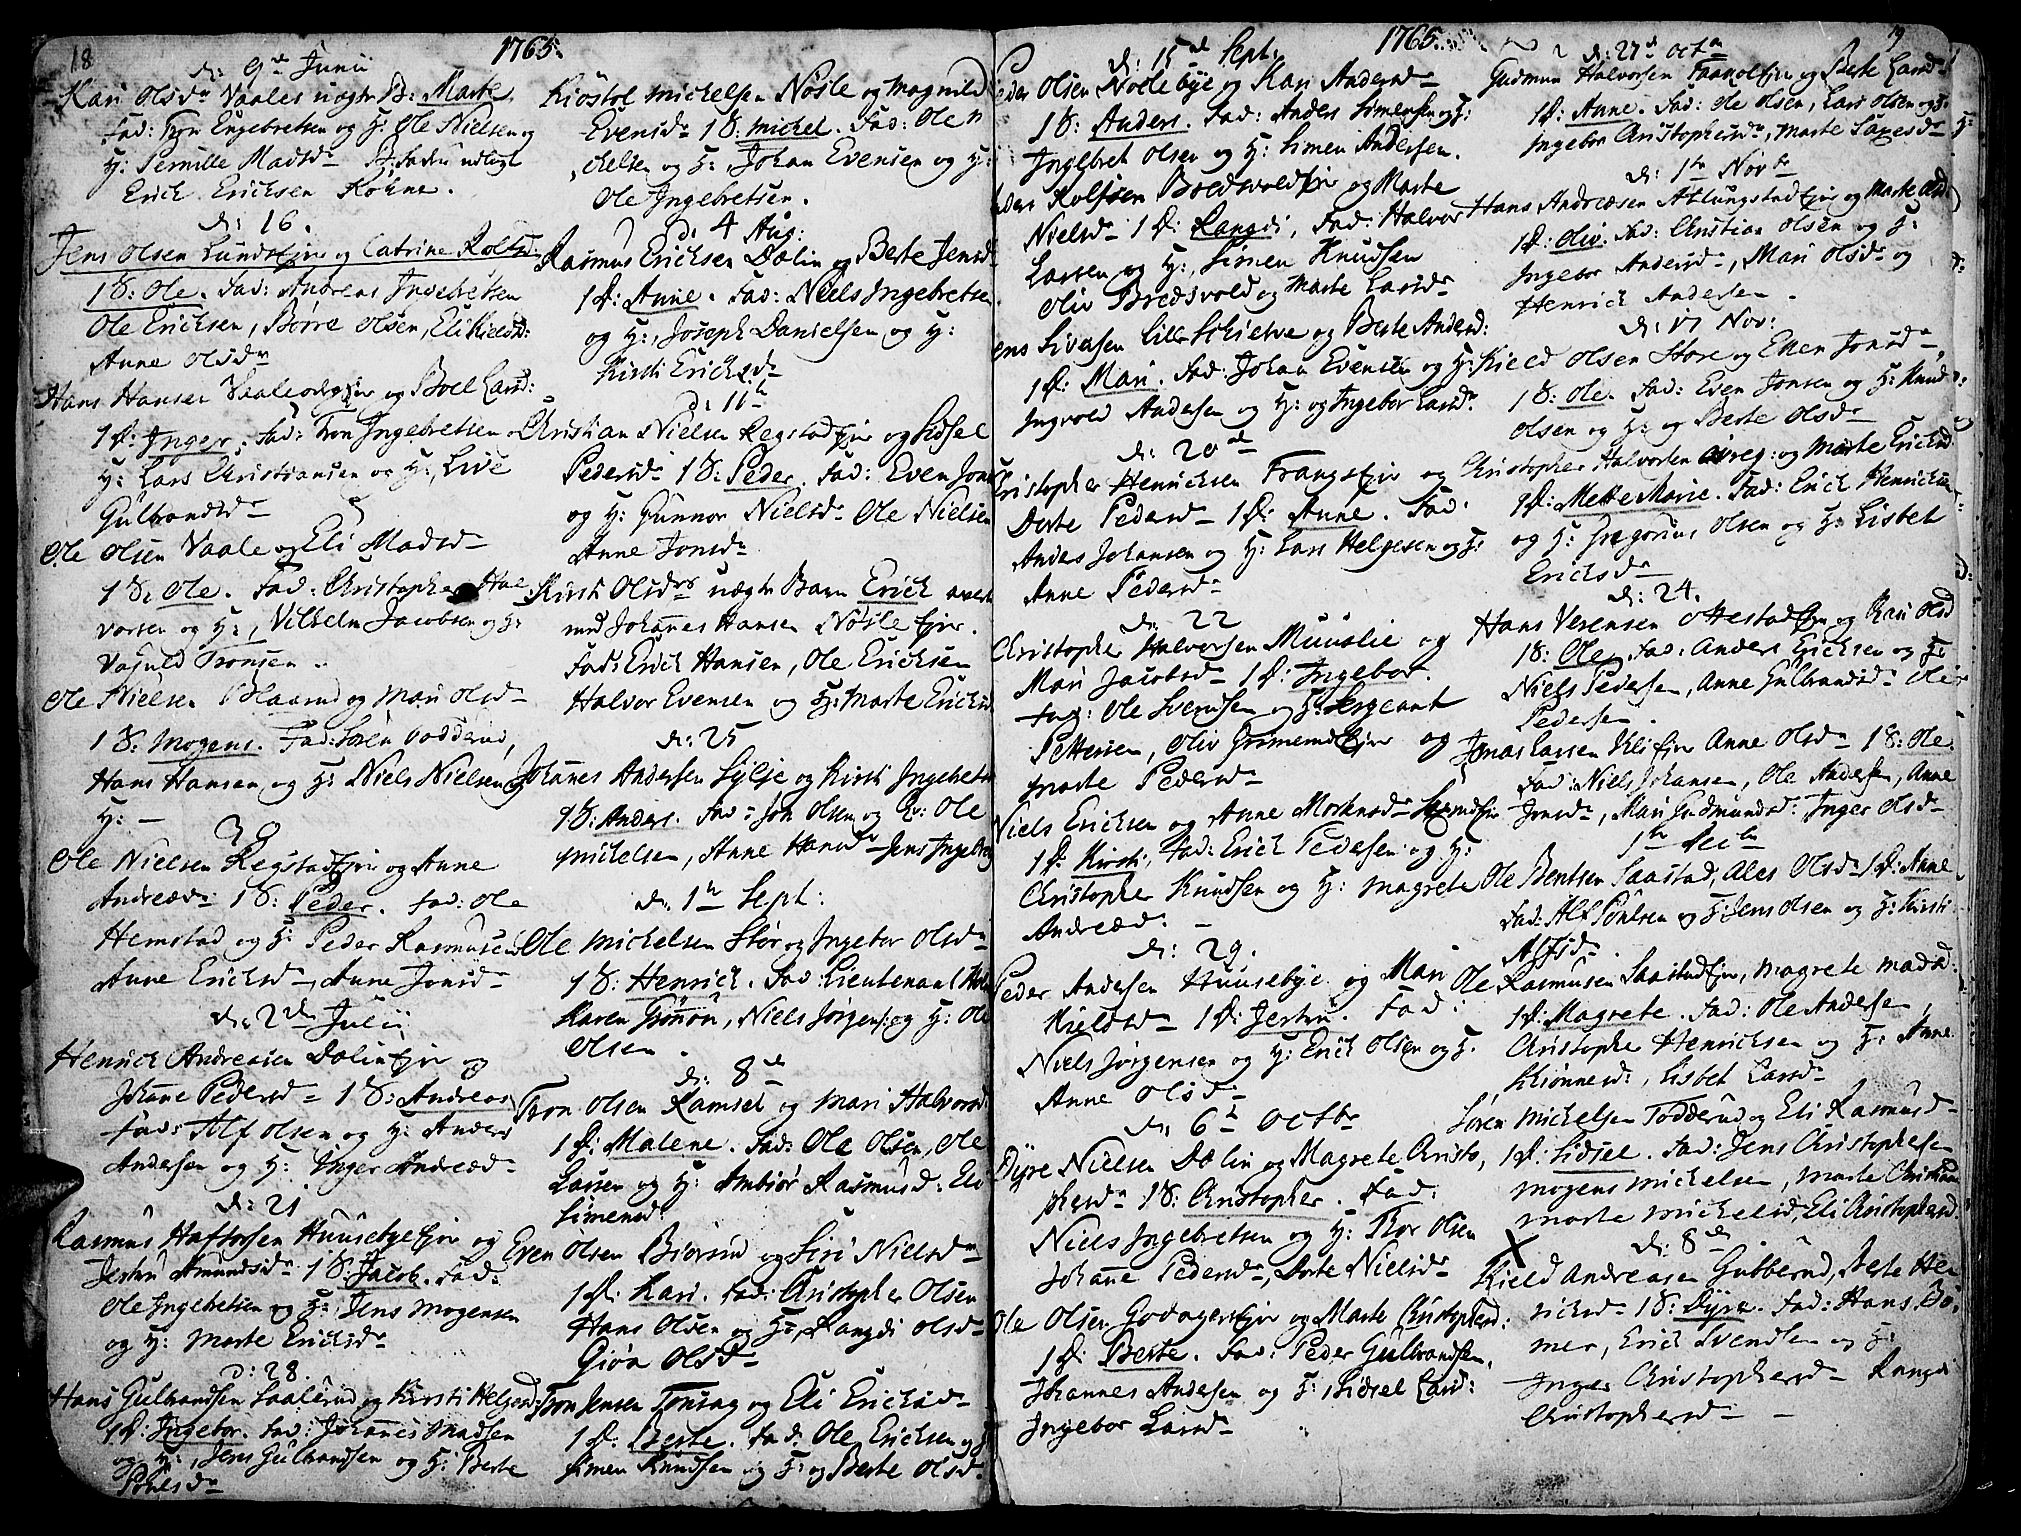 18
1765.
d: 9de Junii
Kari Olsdr Vaales uægte B: Marte.
Fad: Tron Engebretsen og H: Ole Nielsen og
H: Pernille Madsdr B: Fader udlagt
Erich Erichsen Kohne.
d: 16.
Jens Olsen Lundsejer og Catrine Rolfsd:
1 S: Ole. Fad: Andreas Ingebretsen
Ole Ericksen, Börre Olsen, Eli Kieldsd:
Anne Olsdr
Hans Hansen og Boel Larsd:
1 D: Inger. Fad: Tron Ingebretsen
H: Lars Christiansen og H:, Live
Gulbrandsdr
Ole Olsen Vaale og Eli Madsdr
1 S: Ole. Fad: Christopher Hal-
vorsen og H:, Vilhelm Jacobsen og H:
Tronsen.
Ole Nielsen og Mari Olsdr
1 S: Mogens. Fad: Sören
Hans Hansen og H: Niels Nielsen
H: —
Ole Nielsen Regstadejer og Anne
Andreæd: 1 S: Peder. Fad: Ole
Hemstad og H: Peder Rasmusen
Anne Ericksdr, Anne Jonsdr
d: 2de Julii
Henrich Andreasen Dælinejer og
Johane Pedersdr 1 S: Andreas
Fad: Alf Olsen og H: Anders
Andersen og H: Inger Andreæd:
d: 21
Rasmus Haftorsen Huusebyeejer og
Jertru Amundsdr 1 S: Jacob. Fad:
Ole Ingebretsen og H: Jens Mogensen
og H: Marte Ericksdr
d: 28.
Hans Gulbrandsen Saalerud og Kirsti Helgesd:
1 D: Ingebor. Fad: Johannes Madsen
og H:, Jens Gulbrandsen og H: Berte
Poulsdr
Kiöstol Michelsen Nösle og Magnild
Evensdr 1 S: Michel. Fad: Ole M
ichelsen og H: Johan Evensen og H:
Ole Ingebretsen.
d: 4 Aug:
Rasmus Ericksen Dælin og Berte Jensd
1 D: Anne. Fad: Niels Ingebretsen
og H:, Joseph Danielsen og H:
Kirsti Ericksdr
d: 11te
Christian Nielsen Regstadejer og Sidsel
Pedersdr 1 S: Peder. Fad: Even Jons
og H: Gunnor Nielsdr Ole Nielsen
Anne Jonsdr
Kirsti Olsdrs uægte Barn Erich
med Johanes Hansen Nösleejer.
Fad: Erich Hansen, Ole Ericksen
Halvor Evensen og H: Marte Ericksd
d: 25
Johanes Andersen Sylje og Kirsti Ingebretsd
1 S: Anders. Fad: Jon Olsen og Qv: Ole
Michelsen, Anne Hansdr Jens Ingebre
d: 1te Sept:
Ole Michelsen Stör og Ingebor Olsdr
1 S: Henrich. Fad: Lieutenant
Karen, Niels Jörgens: og H: Ole
Olsen.
d: 8de
Tron Olsen Ramset og Mari Halvorsd:
1 D: Malene. Fad: Ole Olsen, Ole
Larsen og H: Ambiör Rasmusd: Eli
Simensd:
Even Olsen Biörnrud og Siri Nielsdr
1 D: Kari. Fad: Christopher Olsen
Hans Olsen og H:, Rangdi Olsdr
Giöa Olsdr
Tron Jensen Tonsag og Eli Ericksdr
1 D: Berte. Fad: Ole Ericksen og H
Simen Knudsen og H: og Berte Olsdr
1765.
19
d: 15de Sept:
Peder Olsen og Kari Andersdr
1 S: Anders. Fad: Anders Simensen og H:
Ingebret Olsen og H: Simen Andersen.
Anders Rolfsen Bredsvoldejer og Marte
Nielsdr 1 D: Rangdi, Fad: Halvor
Larsen og H:, Simen Knudsen
Oliv Bredsvold og Marte Larsdr
Jens Siversen Lille Schielve og Berte Andersd:
1 D: Mari. Fad: Johan Evensen og H:
Ingvold Andersen og H: og Ingebor Larsdr
d: 20de
Christopher Henrichsen Frangsejer og
Dorte Pedersdr 1 D: Anne. Fad:
Anders Johansen og H: Lars Helgesen og H:
Anne Pedersdr
d: 22
Christopher Halvorsen Muuslie og
Mari Jacobsdr 1 D: Ingebor.
Fad: Ole Svendsen og H: Sergeant
Pettersen, Oliv Grimerudejer og
Marte Pedersdr
Niels Ericksen og Anne
1 D: Kirsti, Fad: Erich Pedersen og H:
Christopher Knudsen og H: Magrete
Andreæd:
d: 29.
Peder Andersen Huusebye og Mari
Nielsdr 1 D: Jertru. Fad:
Niels Jörgensen og H: Erich Olsen og H.
Anne Olsdr
d: 6te Octbr
Dyre Nielsen Dælin og Magrete Christo,
phersdr 1 S: Christopher. Fad:
Niels Ingebretsen og H: Thor Olsen
Johanne Pedersdr, Dorte Nielsdr
Ole Olsen Godagerejer og Marte Christophersd:
1 D: Berte. Fad: Peder Gulbrandsen,
Johannes Andersen og H: Sidsel Larsd:
Ingebor Larsdr
d: 27de Octbr
Gudmun Halvorsen og Berte Larsdr
1 D: Anne. Fad: Ole Olsen, Lars Olsen og H:
Ingebor Christophersdr, Marte
d: 1te Novbr
Hans Andreæsen Atlungstadejer og Marte Olsd:
1 D: Oliv. Fad: Christian Olsen og H:
Ingebor Andersdr, Mari Olsdr og
Henrich Andersen.
d: 17 Nov:
Kield Olsen Store og Ellen Jonsdr
1 S: Ole. Fad: Even Jonsen og H: Knud
Olsen og H: og Berte Olsdr
Christopher Halvorsen og Marte Ericksd
1 D: Mette Marie. Fad: Erich Henricksen
og H: Gregorius Olsen og H: Lisbet
Ericksdr
d: 24.
Hans Verensen Ottestadejer og Kari Olsd
1 S: Ole. Fad: Anders Ericksen og H:
Niels Pedersen, Anne Gulbrandsdr Oliv
Pedersen.
Jonas Larsen Kliejer Anne Olsdr 1 S: Ole.
Fad: Niels Johansen, Ole Andersen, Anne
Jonsdr, Mari Gudmundsd: Inger Olsdr
1te Decbr
Ole Bentsen Saastad, Ales Olsdr 1 D: Anne
Fad: Alf Poulsen og H: Jens Olsen og H: Kirsti
Alfsdr
Ole Rasmusen Saastadejer, Magrete Madsd:
1 D: Magrete. Fad: Ole Andersen,
Christopher Henricksen og H: Anne
Kiönnersd:, Lisbet Larsdr
Sören Michelsen Todderud og Eli Rasmusdr
1 D: Sidsel. Fad: Jens Christophersen
Mogens Michelsen, Marte Christians
Marte Michelsd, Eli Christophersd
d: 8de
X Kield Andreasen Gubberud, Berte Hen
ricksdr 1 S: Dyre. Fad: Hans Bö,
mer, Erich Svendsen og H:
Inger Christophersdr Rangdi
Christophersdr